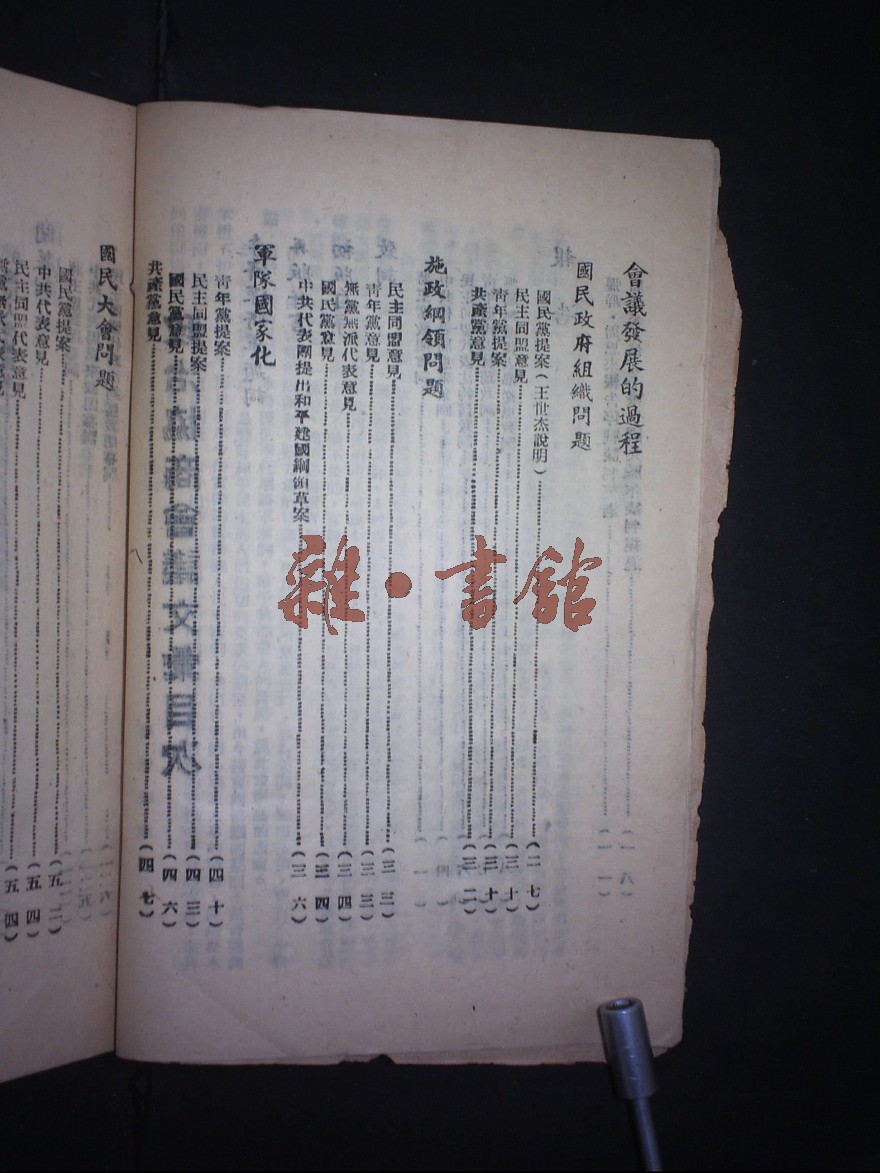 會議發展的過程
國民政府組織問題
國民黨提案(王世杰說明)(二七)
民主同盟意見(三十)
青年黨提案(三十)
共產黨意見(三二)
施政綱領問題
民主同盟意見(三三)
青年黨意見(三三)
無黨無派代表意見(三四)
國民黨意見(三四)
中共代表團提出和平建國綱領草案(三六)
軍隊國家化
青年黨提案(四十)
民主同盟提案(四三)
國民黨意見(四六)
共產黨意見(四七)
國民大會問題
國民黨提案(五二)
中共代表意見(五四)
民主同盟代表意見(五四)
雜·書館